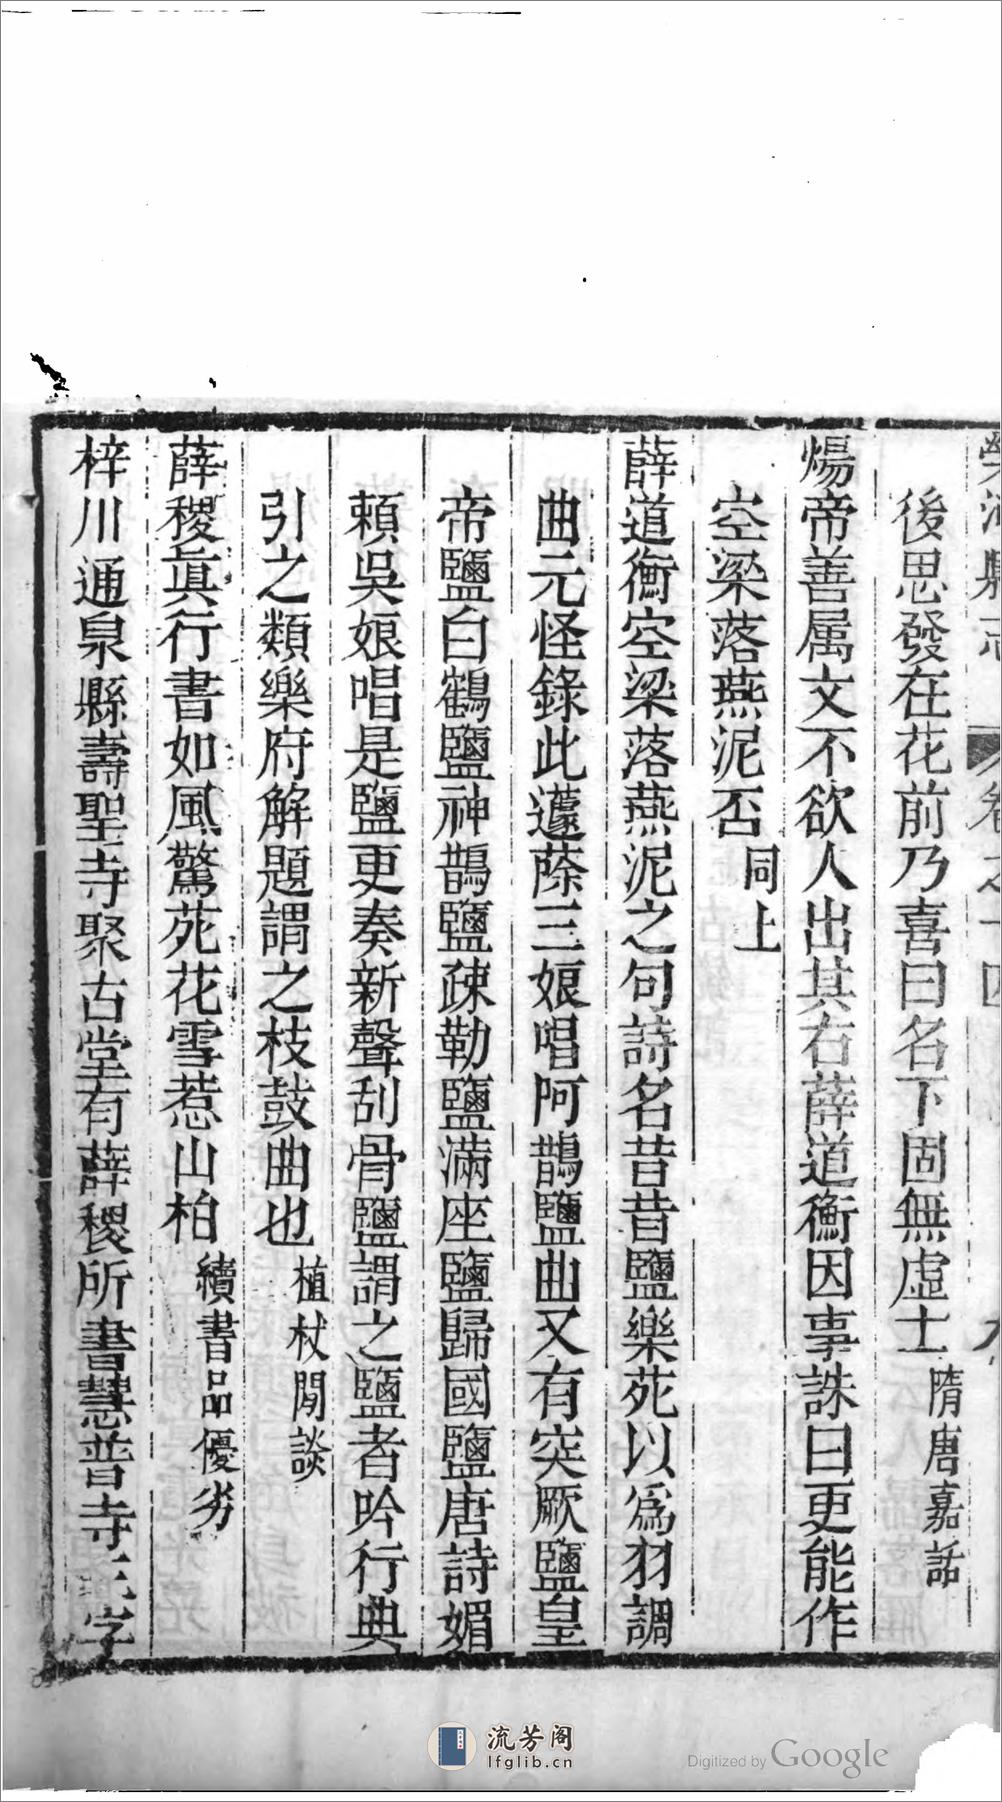 榮河縣志 卷之十四 九
後思發在花前乃喜曰名下固無虛士隋唐嘉話
煬帝善属文不欲人出其右薛道衡因事誅曰更能作
空梁落燕泥否同上
薛道衡空梁落燕泥之句詩名昔昔鹽樂苑以爲羽調
曲元怪錄此蘧蒢三娘唱阿鵲鹽曲又有突厥鹽皇
帝鹽白鶴鹽神鵲鹽疎勒鹽滿座鹽歸國鹽唐詩媚
頼吳娘唱是鹽更奏新聲刮骨鹽謂之鹽者吟行典
引之類樂府解題謂之枝鼓曲也植杖閒談
薛稷眞行書如風驚苑花雪惹山柏續書品優劣
梓川通泉縣壽聖寺聚古堂有薛稷所書慧普寺三字
流芳阁
lfglib.cn
Digitized by Google